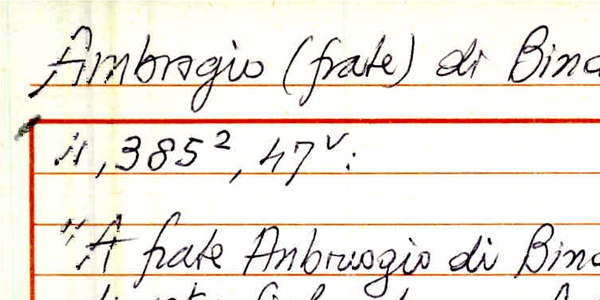 Ambrogio (frate) di Bind
", 385², 47ᵛ:
"A frate Anbruogio di Bind